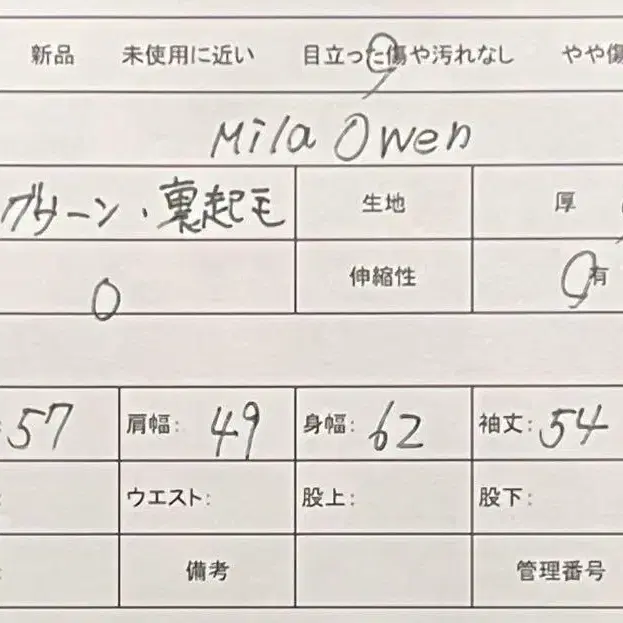 新品 未使用に近い 目立った傷や汚れなし やや傷
Mila Owen
グリーン、裏起毛 生地 厚
0 伸縮性 有
57 肩幅: 49 身幅: 62 袖丈: 54
ウエスト: 股上: 股下:
備考 管理番号